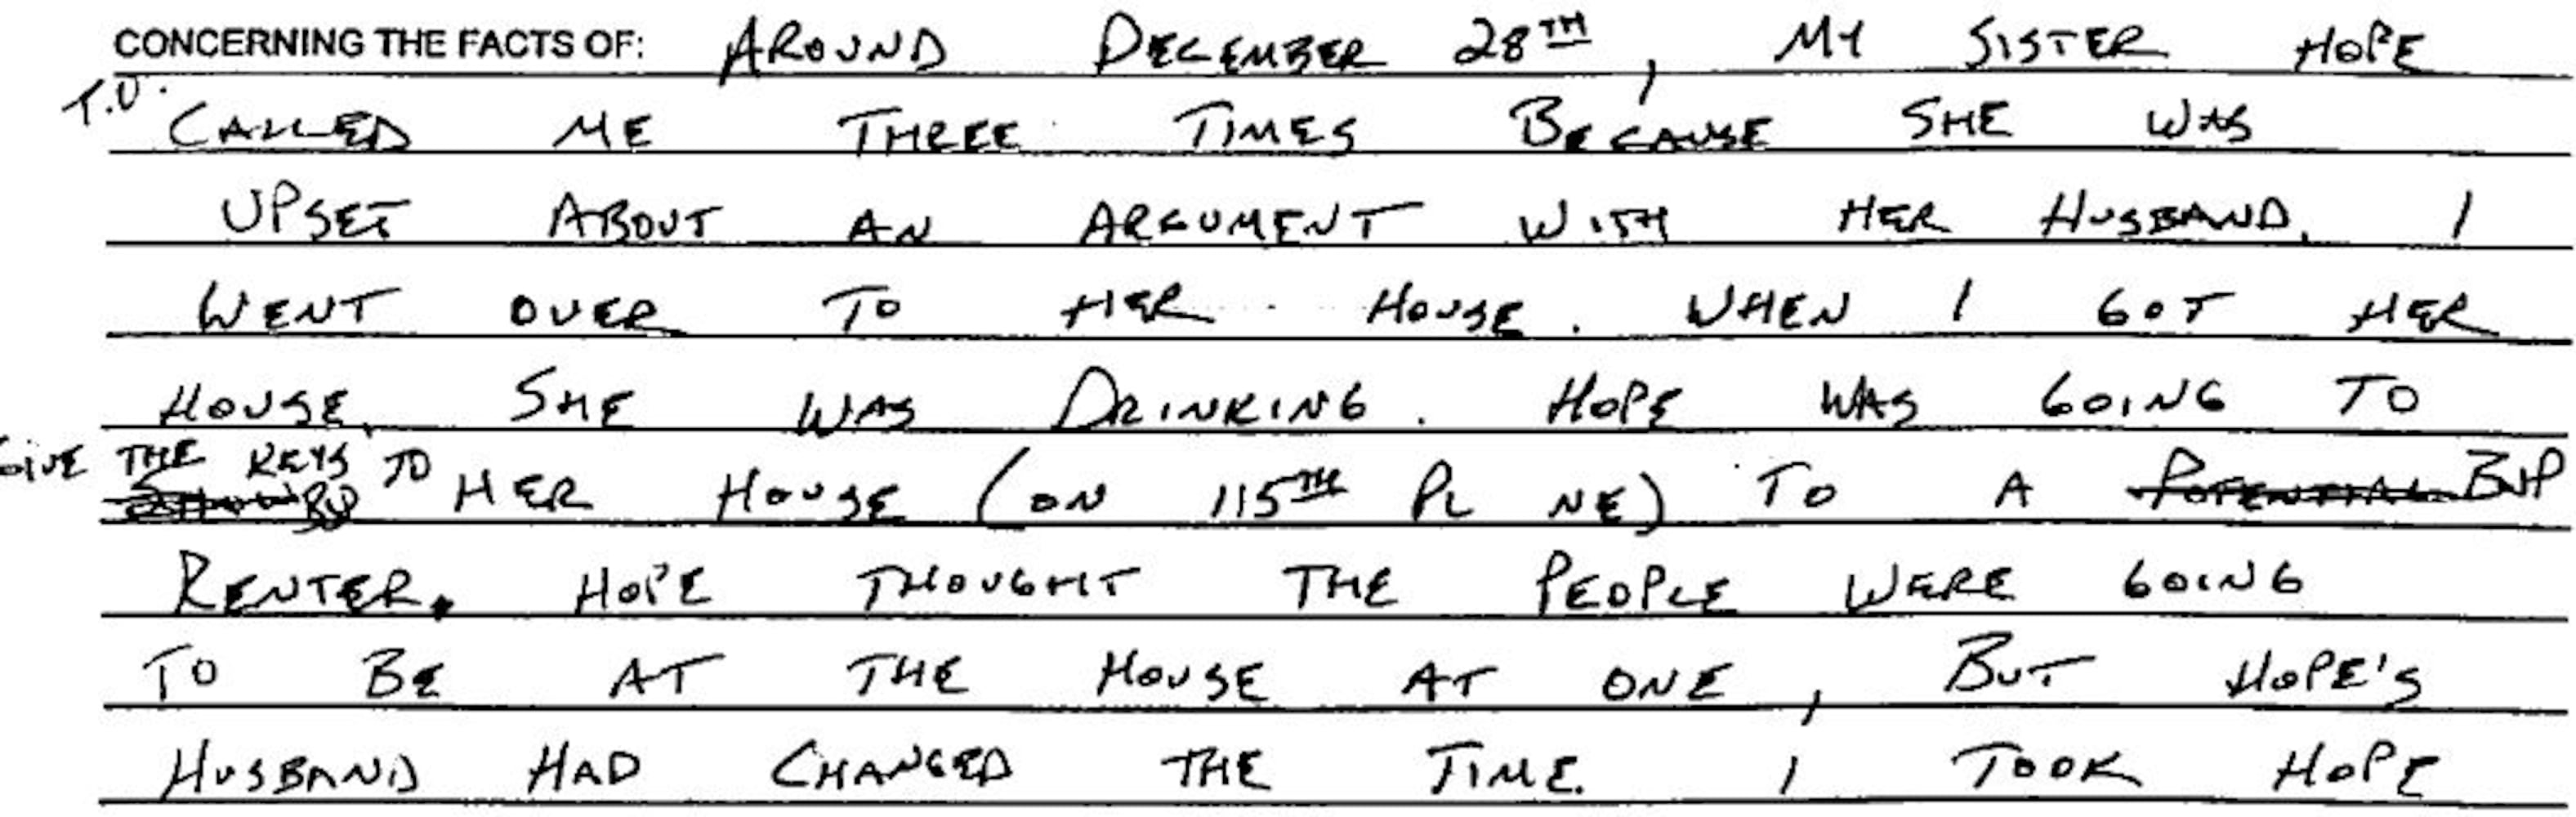 CONCERNING THE FACTS OF: AROUND DECEMBER 28TH, MY SISTER HOPE
CALLED ME THREE TIMES BECAUSE SHE WAS
UPSET ABOUT AN ARGUMENT WITH HER HUSBAND. I
WENT OVER TO HER HOUSE. WHEN I GOT HER
HOUSE, SHE WAS DRINKING. HOPE WAS GOING TO
GIVE THE KEYS TO HER HOUSE (ON 115TH PL NE) TO A POTENTIAL
RENTER. HOPE THOUGHT THE PEOPLE WERE GOING
TO BE AT THE HOUSE AT ONE, BUT HOPE'S
HUSBAND HAD CHANGED THE TIME. I TOOK HOPE